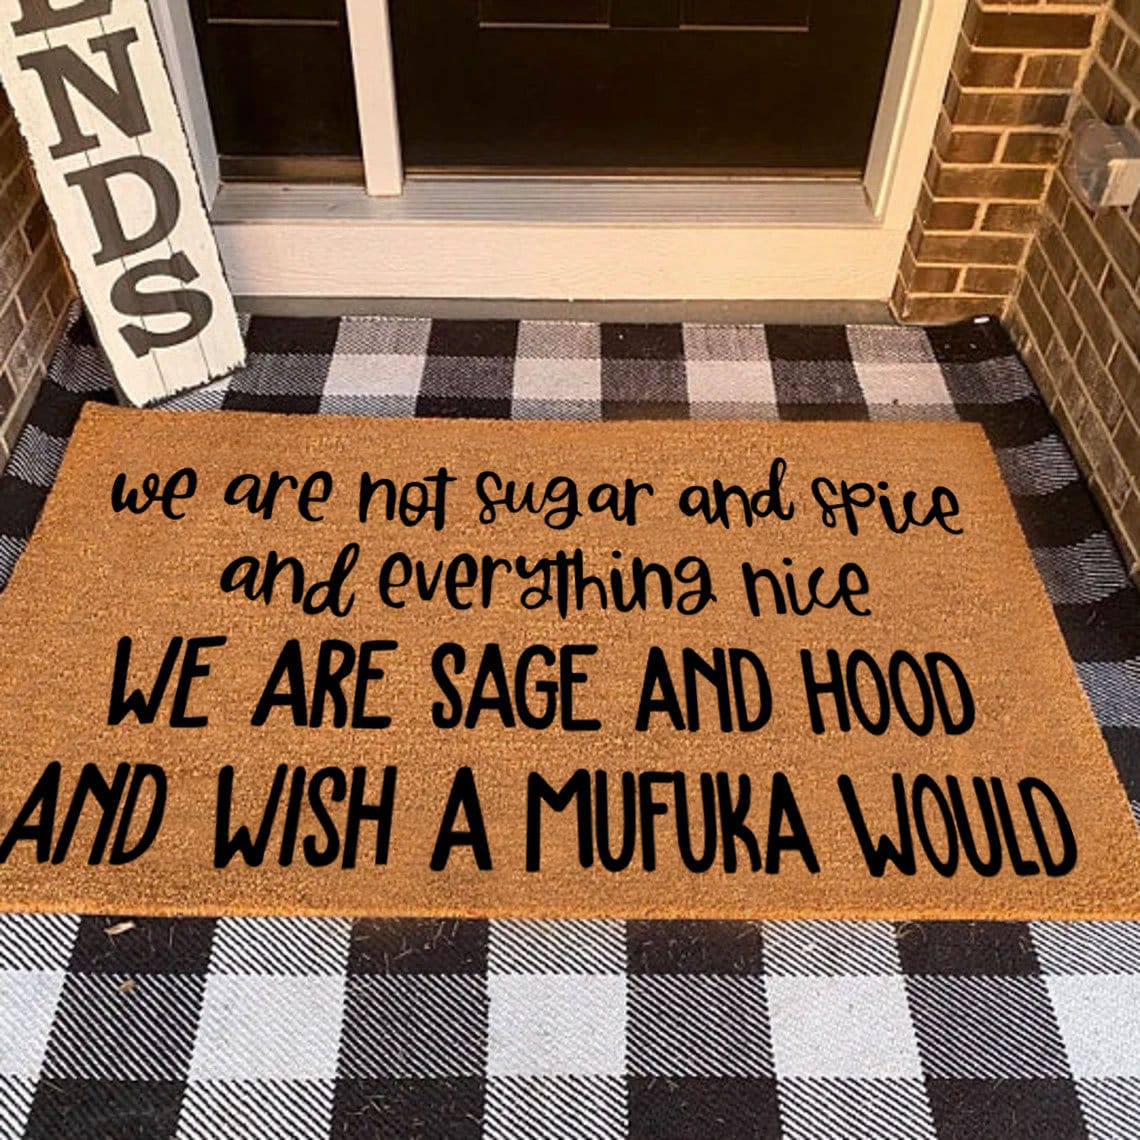 ENDS
we are not sugar and spice
and everything nice
WE ARE SAGE AND HOOD
AND WISH A MUFUKA WOULD